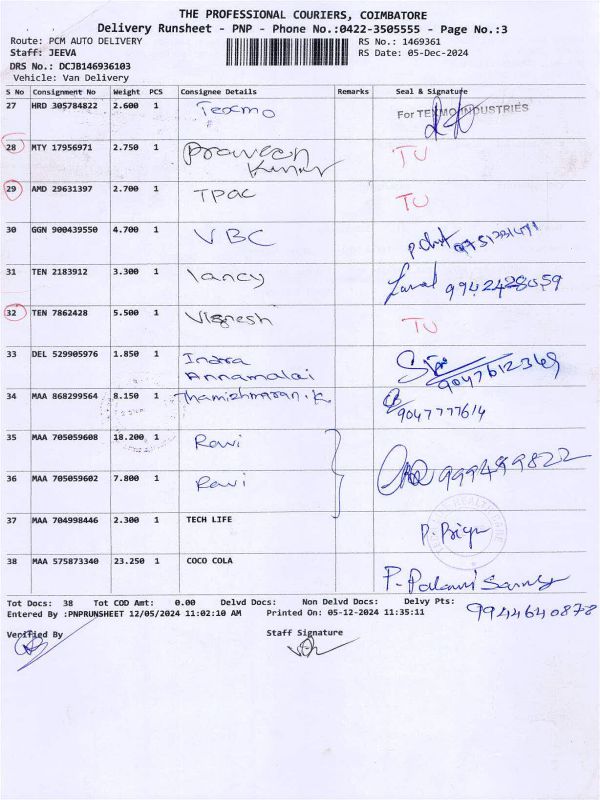 THE PROFESSIONAL COURIERS, COIMBATORE
Delivery Runsheet - PNP - Phone No.:0422-3505555 - Page No.:3
Route: PCM AUTO DELIVERY RS No.: 1469361
Staff: JEEVA RS Date: 05-Dec-2024
DRS No.: DCJB146936103
Vehicle: Van Delivery
S No Consignment No Weight PCS Consignee Details Remarks Seal & Signature
27 HRD 305784822 2.600 1 Texmo For TEXMO INDUSTRIES
28 MTY 17956971 2.750 1 Praveen TU
Kumar
29 AMD 29631397 2.700 1 TPac TU
30 GGN 900439550 4.700 1 VBC
31 TEN 2183912 3.300 1 lancy 9942428059
32 TEN 7862428 5.500 1 Vignesh TU
33 DEL 529905976 1.850 1 Indra
Annamalai 9047612369
34 MAA 868299564 8.150 1 Thamizhmaran.K 9047777614
35 MAA 705059608 18.200 1 Ravi
36 MAA 705059602 7.800 1 Ravi
37 MAA 704998446 2.300 1 TECH LIFE P. Briya
38 MAA 575873340 23.250 1 COCO COLA P. Palani Samy
Tot Docs: 38 Tot COD Amt: 0.00 Delvd Docs: Non Delvd Docs: Delvy Pts:
9944640878
Entered By :PNPRUNSHEET 12/05/2024 11:02:10 AM Printed On: 05-12-2024 11:35:11
Verified By Staff Signature